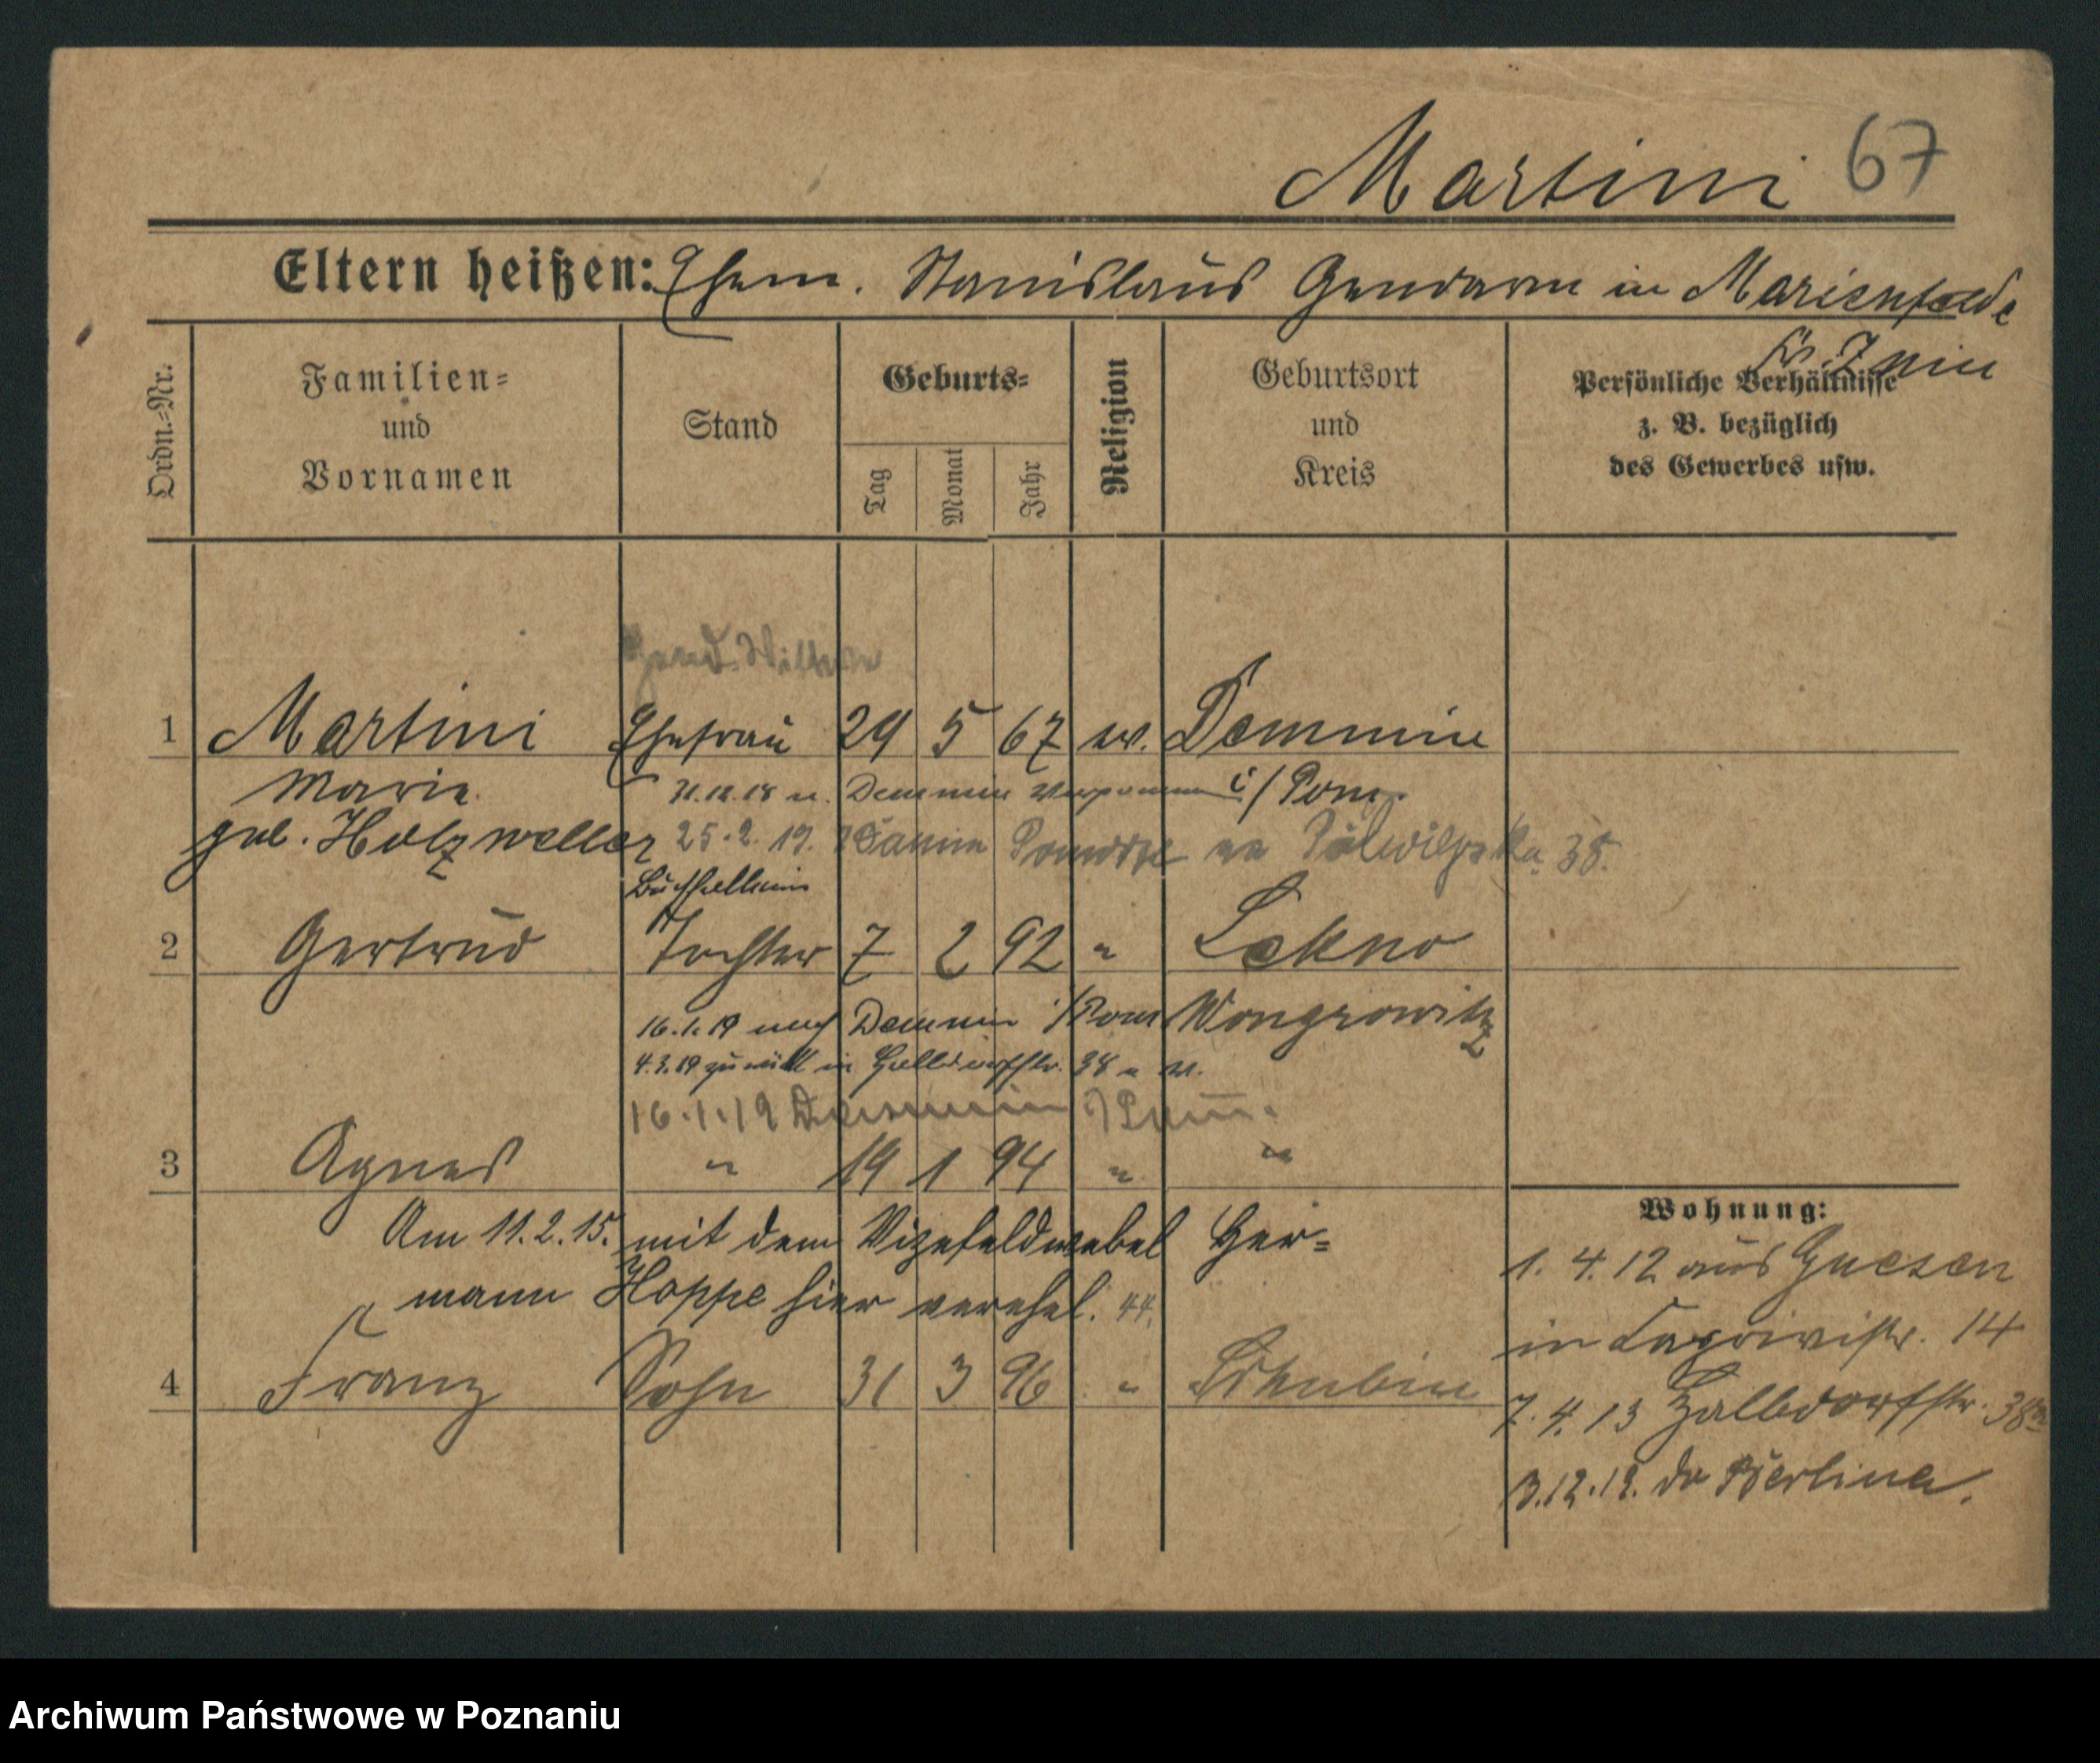 Martini 67
Eltern heißen: Ehem. Stanislaus Gendarm in Marienfelde
Kr. Znin
Ordn.-Nr.
Familien- und Vornamen
Stand
Geburts-
Tag
Monat
Jahr
Religion
Geburtsort und Kreis
Persönliche Verhältnisse
z. B. bezüglich
des Gewerbes usw.
1 Martini Ehefrau 29 5 67 Demmin
Marie 31.12.18 n. Demmin Vorpommern i/Pom.
geb. Holzweller 25.2.19. 38.
2 Gertrud Tochter 7 2 92 " Lekno
16.1.19 nach Demmin i/Pom Wongrowitz
4.3.19 zurück in Halldorffstr. 38
16.1.19 Demmin i/Pom.
3 Agnes " 19 1 94 " "
Am 11.2.15. mit dem Vizefeldwebel Her=
mann Hoppe hier verehel. 44.
4 Franz Sohn 31 3 96 " Schubin
Wohnung:
1. 4. 12 aus Gnesen
in Caprivistr. 14
7. 4. 13 Halldorffstr. 38
3.12.19. do Berlina.
Archiwum Państwowe w Poznaniu